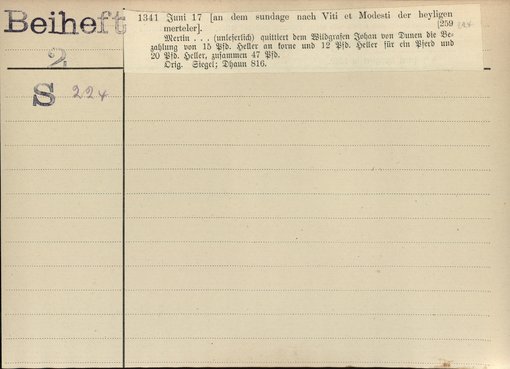 Beiheft
2
S 224
1341 Juni 17 [an dem sundage nach Viti et Modesti der heyligen
merteler]. [259
224
Mertin . . . (unleserlich) quittiert dem Wildgrafen Johan von Dunen die Be-
zahlung von 15 Pfd. Heller an korne und 12 Pfd. Heller für ein Pferd und
20 Pfd. Heller, zusammen 47 Pfd.
Orig. Siegel; Dhaun 816.